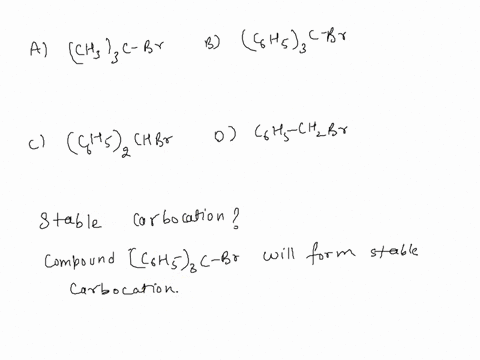 A) (CH3)3C-Br B) (C6H5)3C-Br
C) (C6H5)2CHBr D) C6H5-CH2Br
Stable carbocation?
Compound [C6H5)3C-Br will form stable
carbocation.